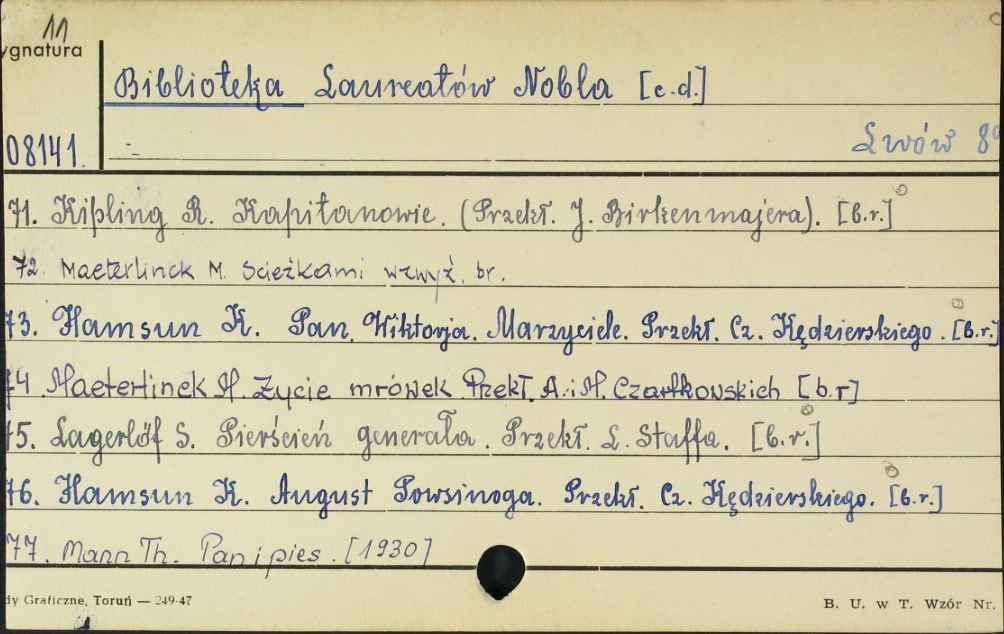 11
ygnatura
Biblioteka Laureatów Nobla [c.d.]
08141.
Lwów 8°
71. Kipling R. Kapitanowie. (Przekł. J. Birkenmajera). [b.r.]
72. Maeterlinck M. Scieżkami wzwyż. br.
73. Hamsun K. Pan. Wiktorja. Marzyciele. Przekł. Cz. Kędzierskiego. [b.r.]
74. Maeterlinck M. Życie mrówek Przekł. A. i M. Czartkowskich [b.r]
75. Lagerlöf S. Pierścień generała. Przekł. L. Staffa. [b.r.]
76. Hamsun K. August Powsinoga. Przekł. Cz. Kędzierskiego. [b.r.]
77. Mann Th. Pan i pies. [1930]
dy Graficzne, Toruń — 249-47
B. U. w T. Wzór Nr.